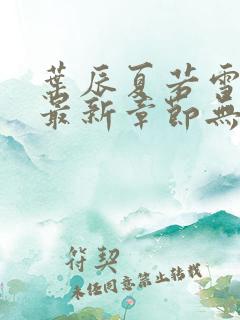 葉辰夏若雪
最新章節無
符契
未经同意禁止转载